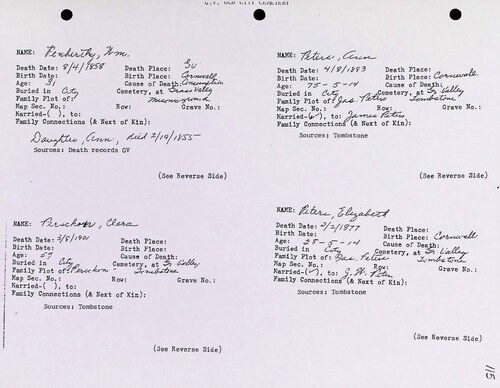 G.V. OLD CITY CEMETERY
NAME: Penberthy, Wm.
Death Date: 8/4/1858 Death Place: GV
Birth Date: Birth Place: Cornwall
Age: 31 Cause of Death: Consumption
Buried in City Cemetery, at Grass Valley
Family Plot of:
Map Sec. No.: Row: Grave No.:
Married-( ), to:
Family Connections (& Next of Kin):
Daughter, Ann, died 2/19/1855
Sources: Death records GV
(See Reverse Side)
NAME: Peters, Ann
Death Date: 4/8/1883 Death Place:
Birth Date: Birth Place: Cornwall
Age: 75-5-14 Cause of Death:
Buried in City Cemetery, at Gr. Valley
Family Plot of: Jas. Peters Tombstone
Map Sec. No.: Row: Grave No.:
Married-(✓), to: James Peters
Family Connections (& Next of Kin):
Sources: Tombstone
(See Reverse Side)
NAME: Peruchon, Clara
Death Date: 3/8/1901 Death Place:
Birth Date: Birth Place:
Age: 57 Cause of Death:
Buried in City Cemetery, at Gr. Valley
Family Plot of: Peruchon Tombstone
Map Sec. No.: Row: Grave No.:
Married-( ), to:
Family Connections (& Next of Kin):
Sources: Tombstone
(See Reverse Side)
NAME: Peters, Elizabeth
Death Date: 2/2/1877 Death Place:
Birth Date: Birth Place: Cornwall
Age: 28-5-14 Cause of Death:
Buried in City Cemetery, at Gr. Valley
Family Plot of: Jas. Peters Tombstone
Map Sec. No.: Row: Grave No.:
Married-(✓), to: J. W. Peters
Family Connections (& Next of Kin):
Sources: Tombstone
(See Reverse Side)
115